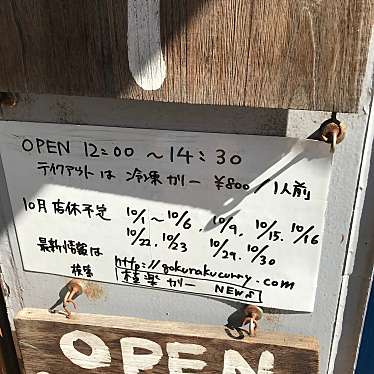 OPEN 12:00 〜 14:30
テイクアウトは 冷凍カリー ¥800/1人前
10月 店休予定 10/1〜10/6, 10/9, 10/15, 10/16
10/22, 10/23 10/29, 10/30
最新情報は http://gokurakucurry.com
検索 極楽カリー NEW♪
OPEN